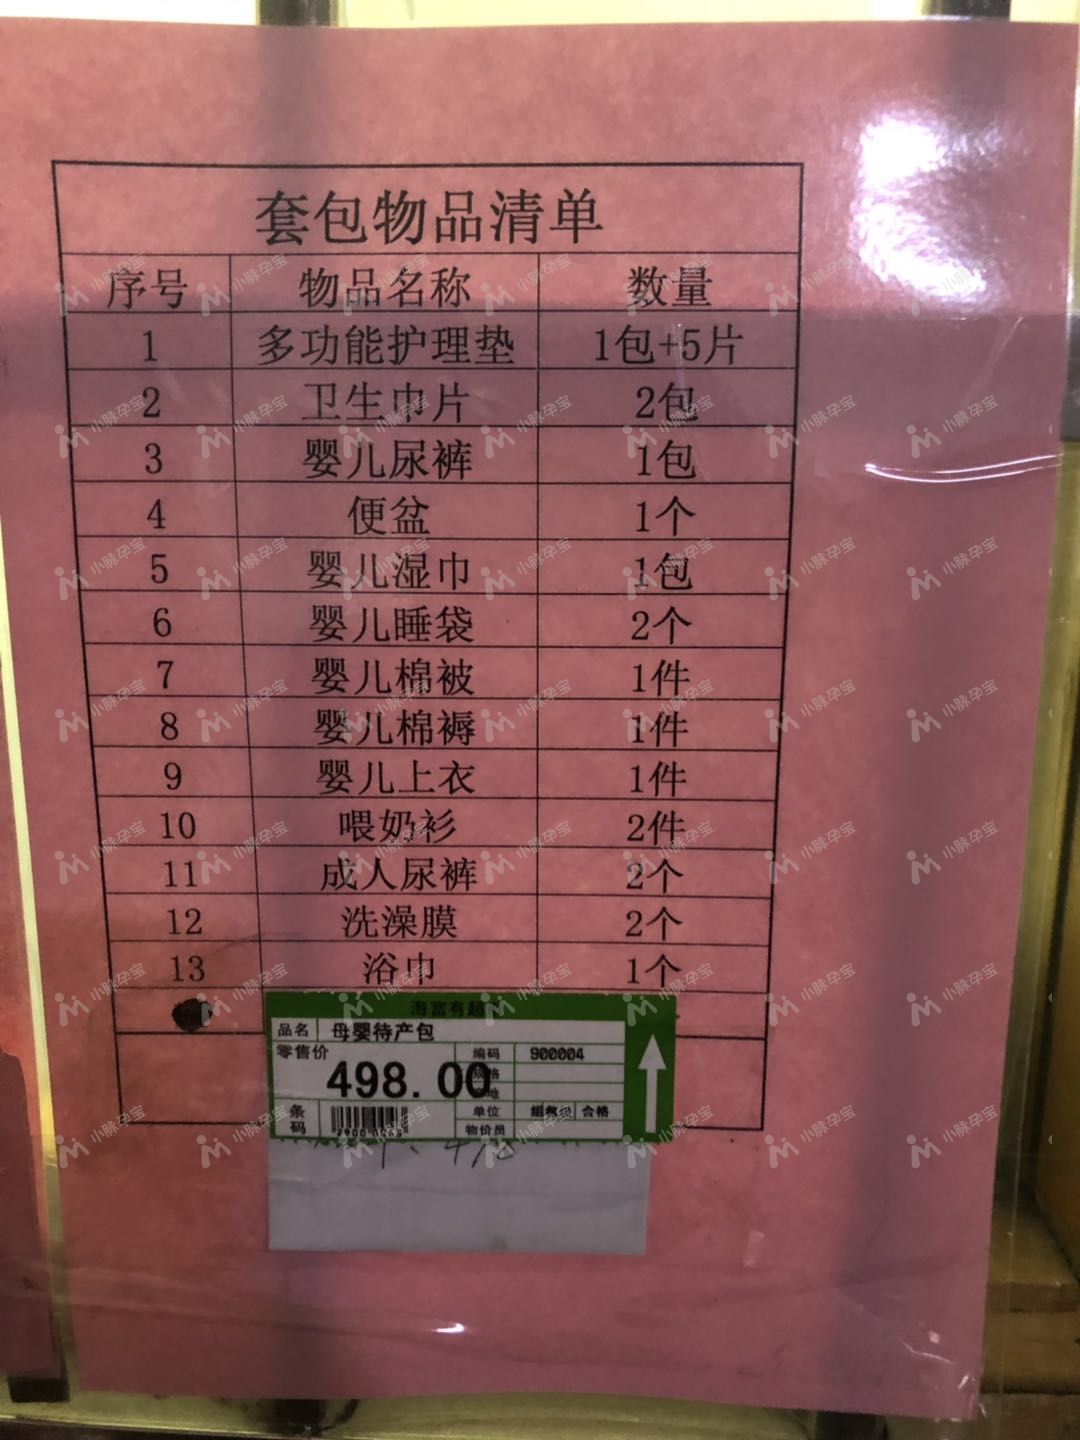 套包物品清单
序号 物品名称 数量
1 多功能护理垫 1包+5片
2 卫生巾片 2包
3 婴儿尿裤 1包
4 便盆 1个
5 婴儿湿巾 1包
6 婴儿睡袋 2个
7 婴儿棉被 1件
8 婴儿棉褥 1件
9 婴儿上衣 1件
10 喂奶衫 2件
11 成人尿裤 2个
12 洗澡膜 2个
13 浴巾 1个
海富有超
品名 母婴待产包
零售价 498.00 编码 900004
条码 单位 合格
物价员
小脉孕宝